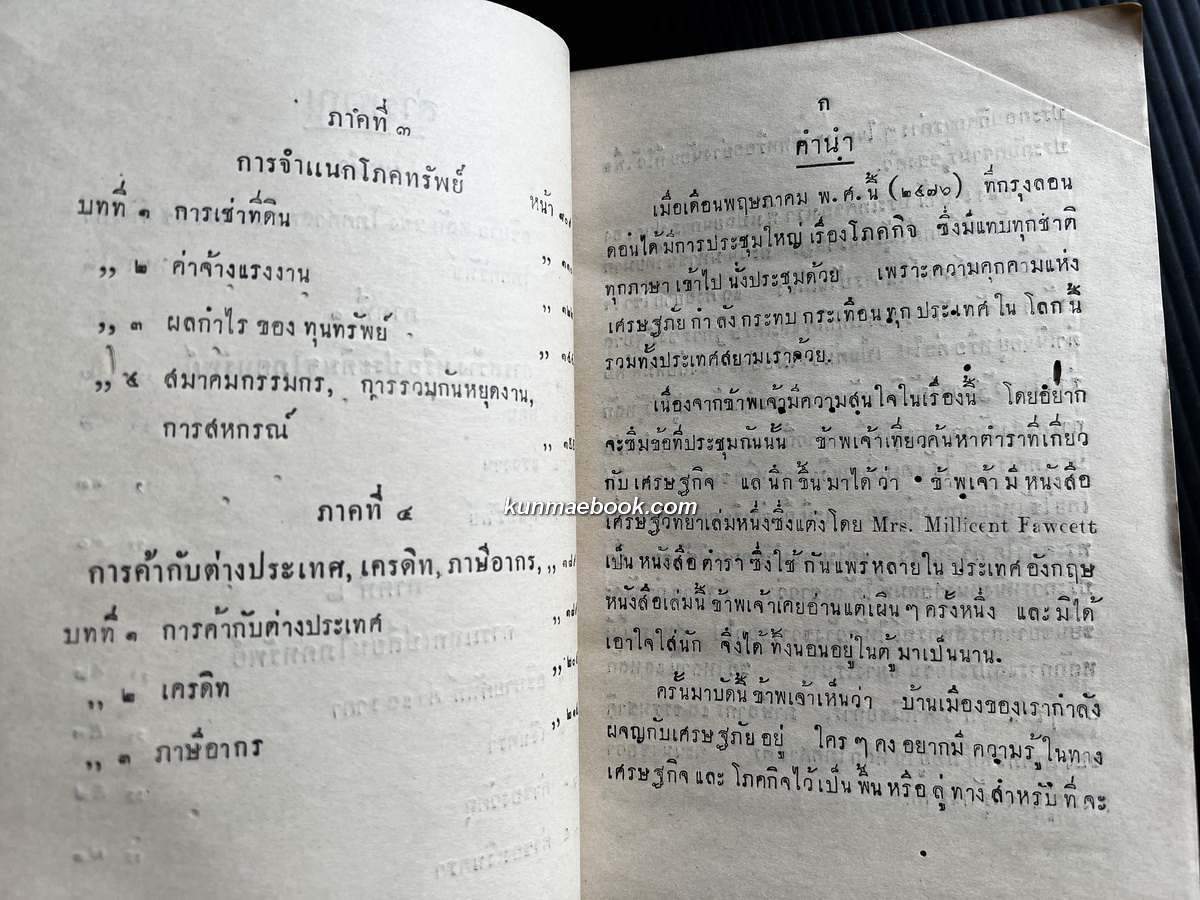 ภาคที่ ๓
การจำแนกโภคทรัพย์
หน้า
บทที่ ๑ การเช่าที่ดิน
,, ๒ ค่าจ้างแรงงาน ,,
,, ๓ ผลกำไร ของ ทุนทรัพย์ ,,
,, ๔ สมาคมกรรมกร, การรวมกันหยุดงาน, ,,
การสหกรณ์ ,,
ภาคที่ ๔
การค้ากับต่างประเทศ, เครดิท, ภาษีอากร, ,,
บทที่ ๑ การค้ากับต่างประเทศ ,,
,, ๒ เครดิท ,,
,, ๓ ภาษีอากร ,,
ก
คำนำ
เมื่อเดือนพฤษภาคม พ.ศ. นี้ (๒๔๗๖) ที่กรุงลอน
ดอนได้มีการประชุมใหญ่ เรื่องโภคกิจ ซึ่งมีแทบทุกชาติ
ทุกภาษา เข้าไป นั่งประชุมด้วย เพราะความคุกคามแห่ง
เศรษฐภัย กำลังกระทบ กระเทือน ทุก ประเทศ ใน โลก นี้
รวมทั้งประเทศสยามเราด้วย.
เนื่องจากข้าพเจ้ามีความสนใจในเรื่องนี้ โดยอยาก
จะซึมข้อที่ประชุมกันนั้น ข้าพเจ้าเที่ยวค้นหาตำราที่เกี่ยว
กับ เศรษฐกิจ แล นึก ขึ้น มาได้ ว่า ข้าพเจ้า มี หนังสือ
เศรษฐวิทยาเล่มหนึ่งซึ่งแต่งโดย Mrs. Millicent Fawcett
เป็น หนังสือ ตำรา ซึ่งใช้ กันแพร่หลายใน ประเทศ อังกฤษ
หนังสือเล่มนี้ ข้าพเจ้าเคยอ่านแต่เผินๆ ครั้งหนึ่ง และ มิได้
เอาใจใส่นัก จึงได้ ทิ้งนอนอยู่ในตู้ มาเป็นนาน.
ครั้นมาบัดนี้ ข้าพเจ้าเห็นว่า บ้านเมืองของเรากำลัง
ผจญกับเศรษฐภัย อยู่ ใครๆ คง อยากมี ความรู้ ในทาง
เศรษฐกิจ และ โภคกิจไว้ เป็น พื้น หรือ ลู่ ทาง สำหรับ ที่ จะ
kunmaebook.com